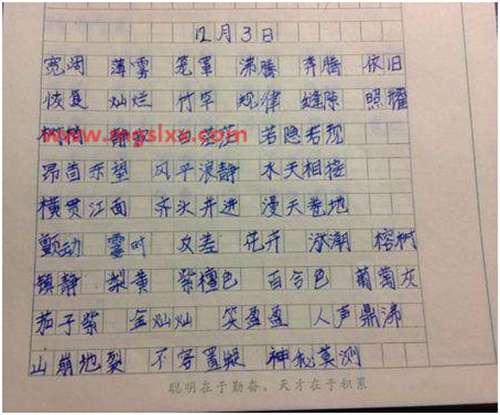 12月3日
宽阔 薄雾 笼罩 沸腾 奔腾 依旧
恢复 灿烂 竹竿 规律 缝隙 照耀
www.mgslxx.com
若隐若现
昂首东望 风平浪静 水天相接
横贯江面 齐头并进 漫天卷地
颤动 霎时 交差 花卉 冰潮 榕树
镇静 梨黄 紫檀色 百合色 葡萄灰
茄子紫 金灿灿 笑盈盈 人声鼎沸
山崩地裂 不容置疑 神秘莫测
聪明在于勤奋，天才在于积累